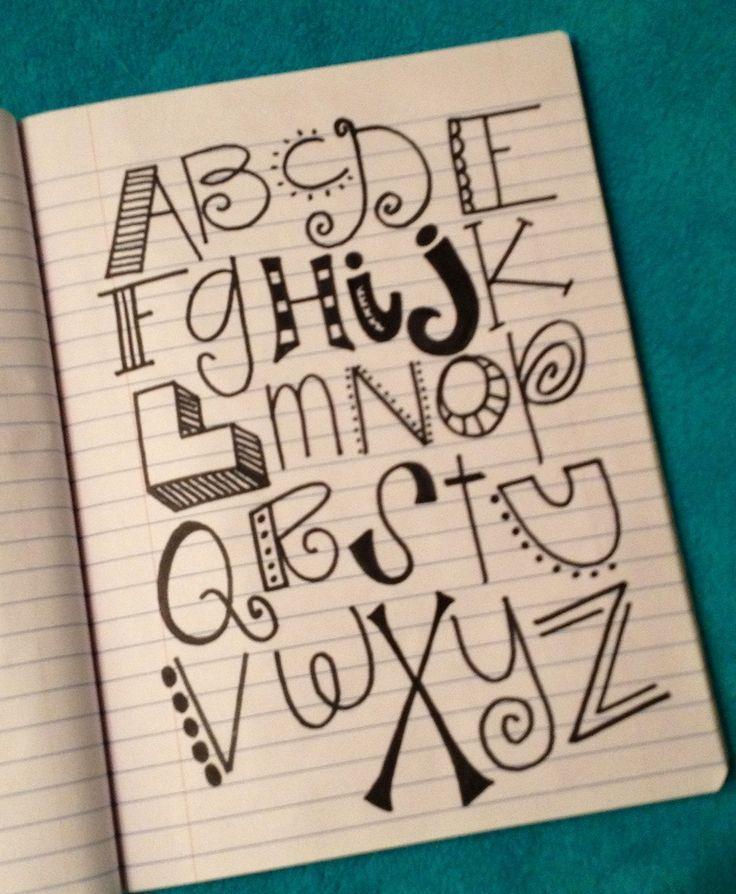 ABCDE
FgHijK
LmNOP
QRStU
VWXyZ